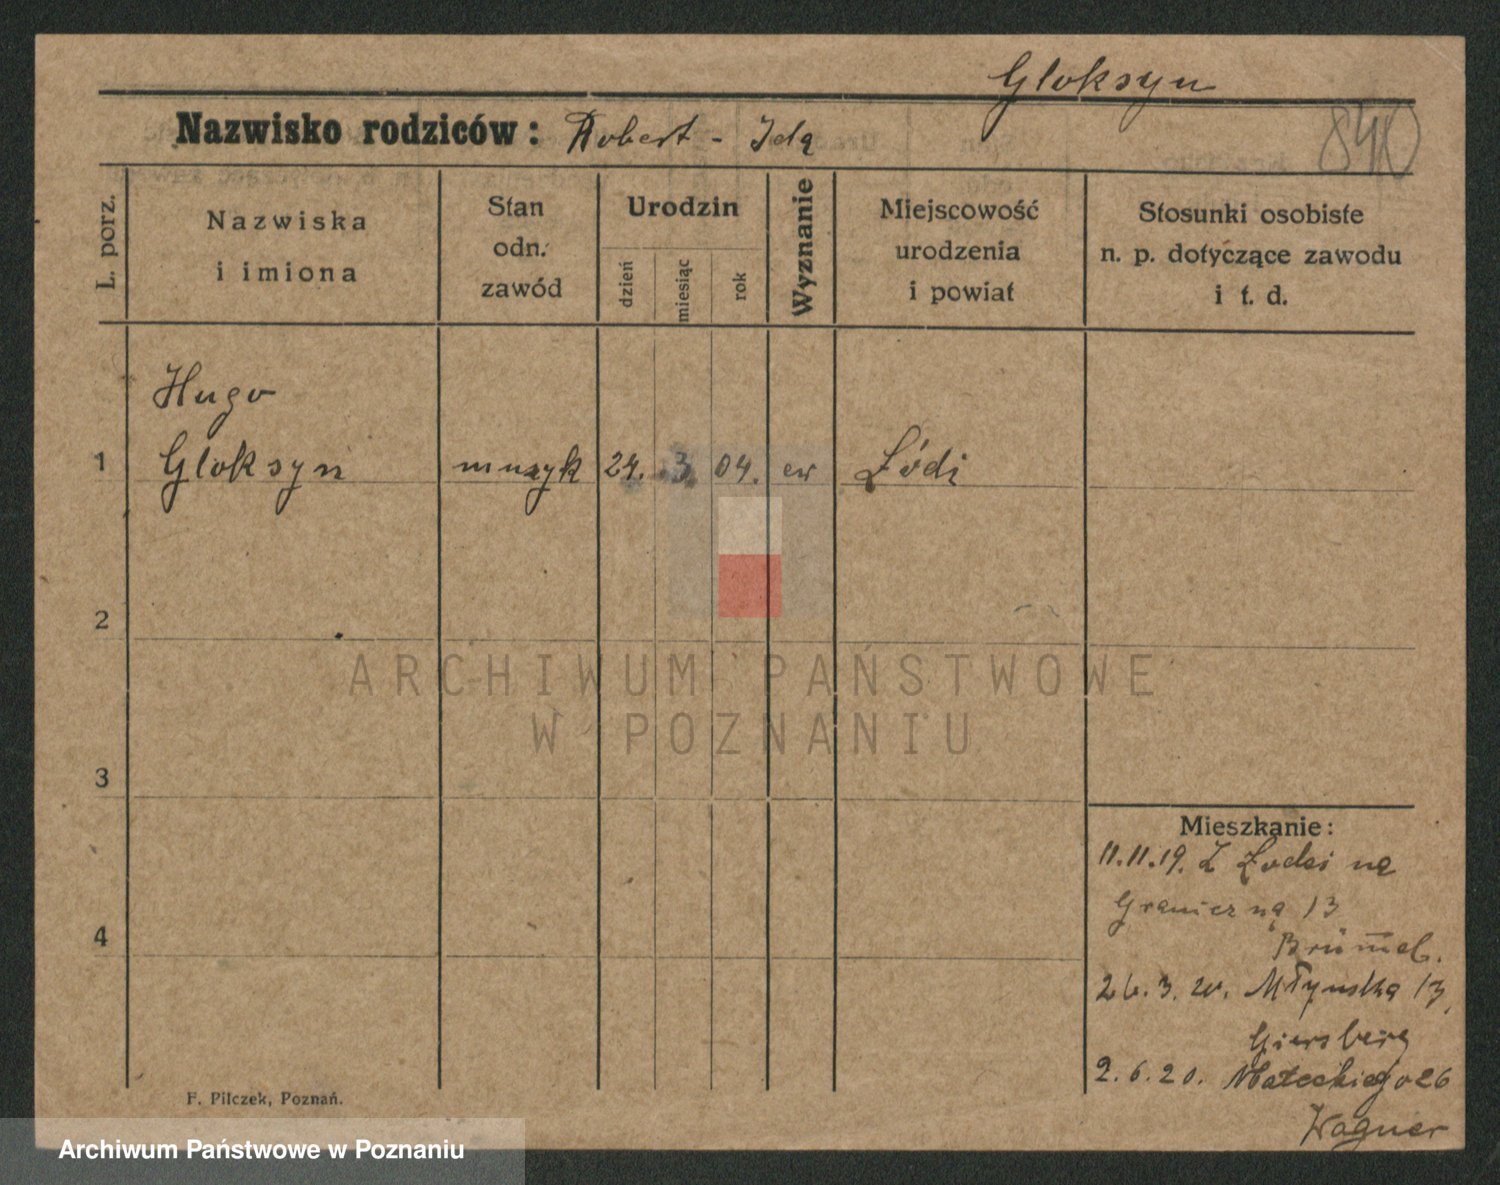 Gloksyn
Nazwisko rodziców: Robert - Ida
840
L. porz.
Nazwiska
i imiona
Stan
odn.
zawód
Urodzin
dzień
miesiąc
rok
Wyznanie
Miejscowość
urodzenia
i powiat
Stosunki osobiste
n. p. dotyczące zawodu
i t. d.
Hugo
1 Gloksyn muzyk 24. 3 04. ew Łódź
2
3
4
ARCHIWUM PAŃSTWOWE
W POZNANIU
Mieszkanie:
11.11.19. Z Łodzi na
Graniczną 13
26.3.20. Młyńska 13,
Giersberg
2.6.20. Małeckiego 26
Wagner
F. Pilczek, Poznań.
Archiwum Państwowe w Poznaniu